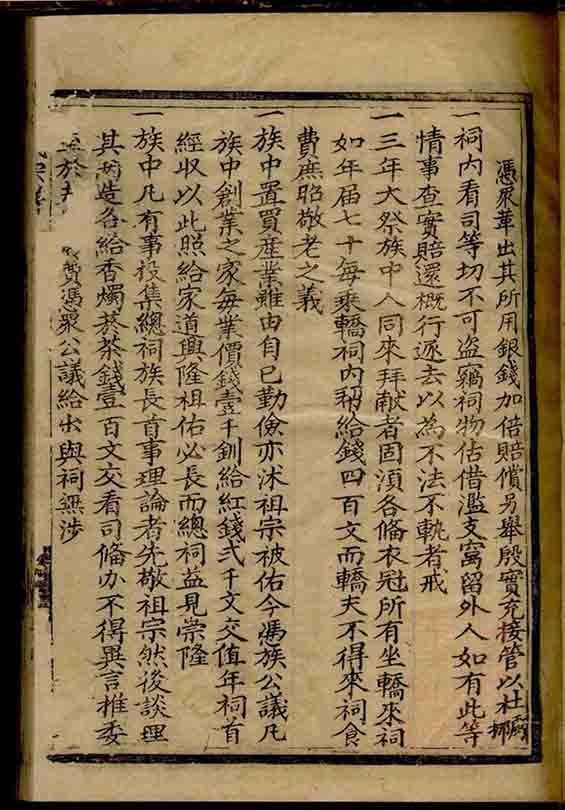 憑眾革出其所用銀錢加倍賠償另舉殷實充接管以杜
一祠內看司等切不可盜竊祠物估借濫支窩留外人如有此等
情事查實賠還概行逐去以為不法不軌者戒
一三年大祭族中人同來拜献者固須各俻衣冠所有坐轎來祠
如年届七十每乘轎祠內帮給錢四百文而轎夫不得來祠食
費庶昭敬老之義
一族中置買産業雖由自已勤儉亦沭祖宗被佑今憑族公議凡
族中創業之家每業價錢壹千釧給紅錢弍千文交值年祠首
經収以此照給家道興隆祖佑必長而總祠益見崇隆
一族中凡有事投集總祠族長首事理論者先敬祖宗然後談理
其兩造各給香燭菸茶錢壹百文交看司俻办不得異言推委
至於 費憑眾公議給出與祠無涉